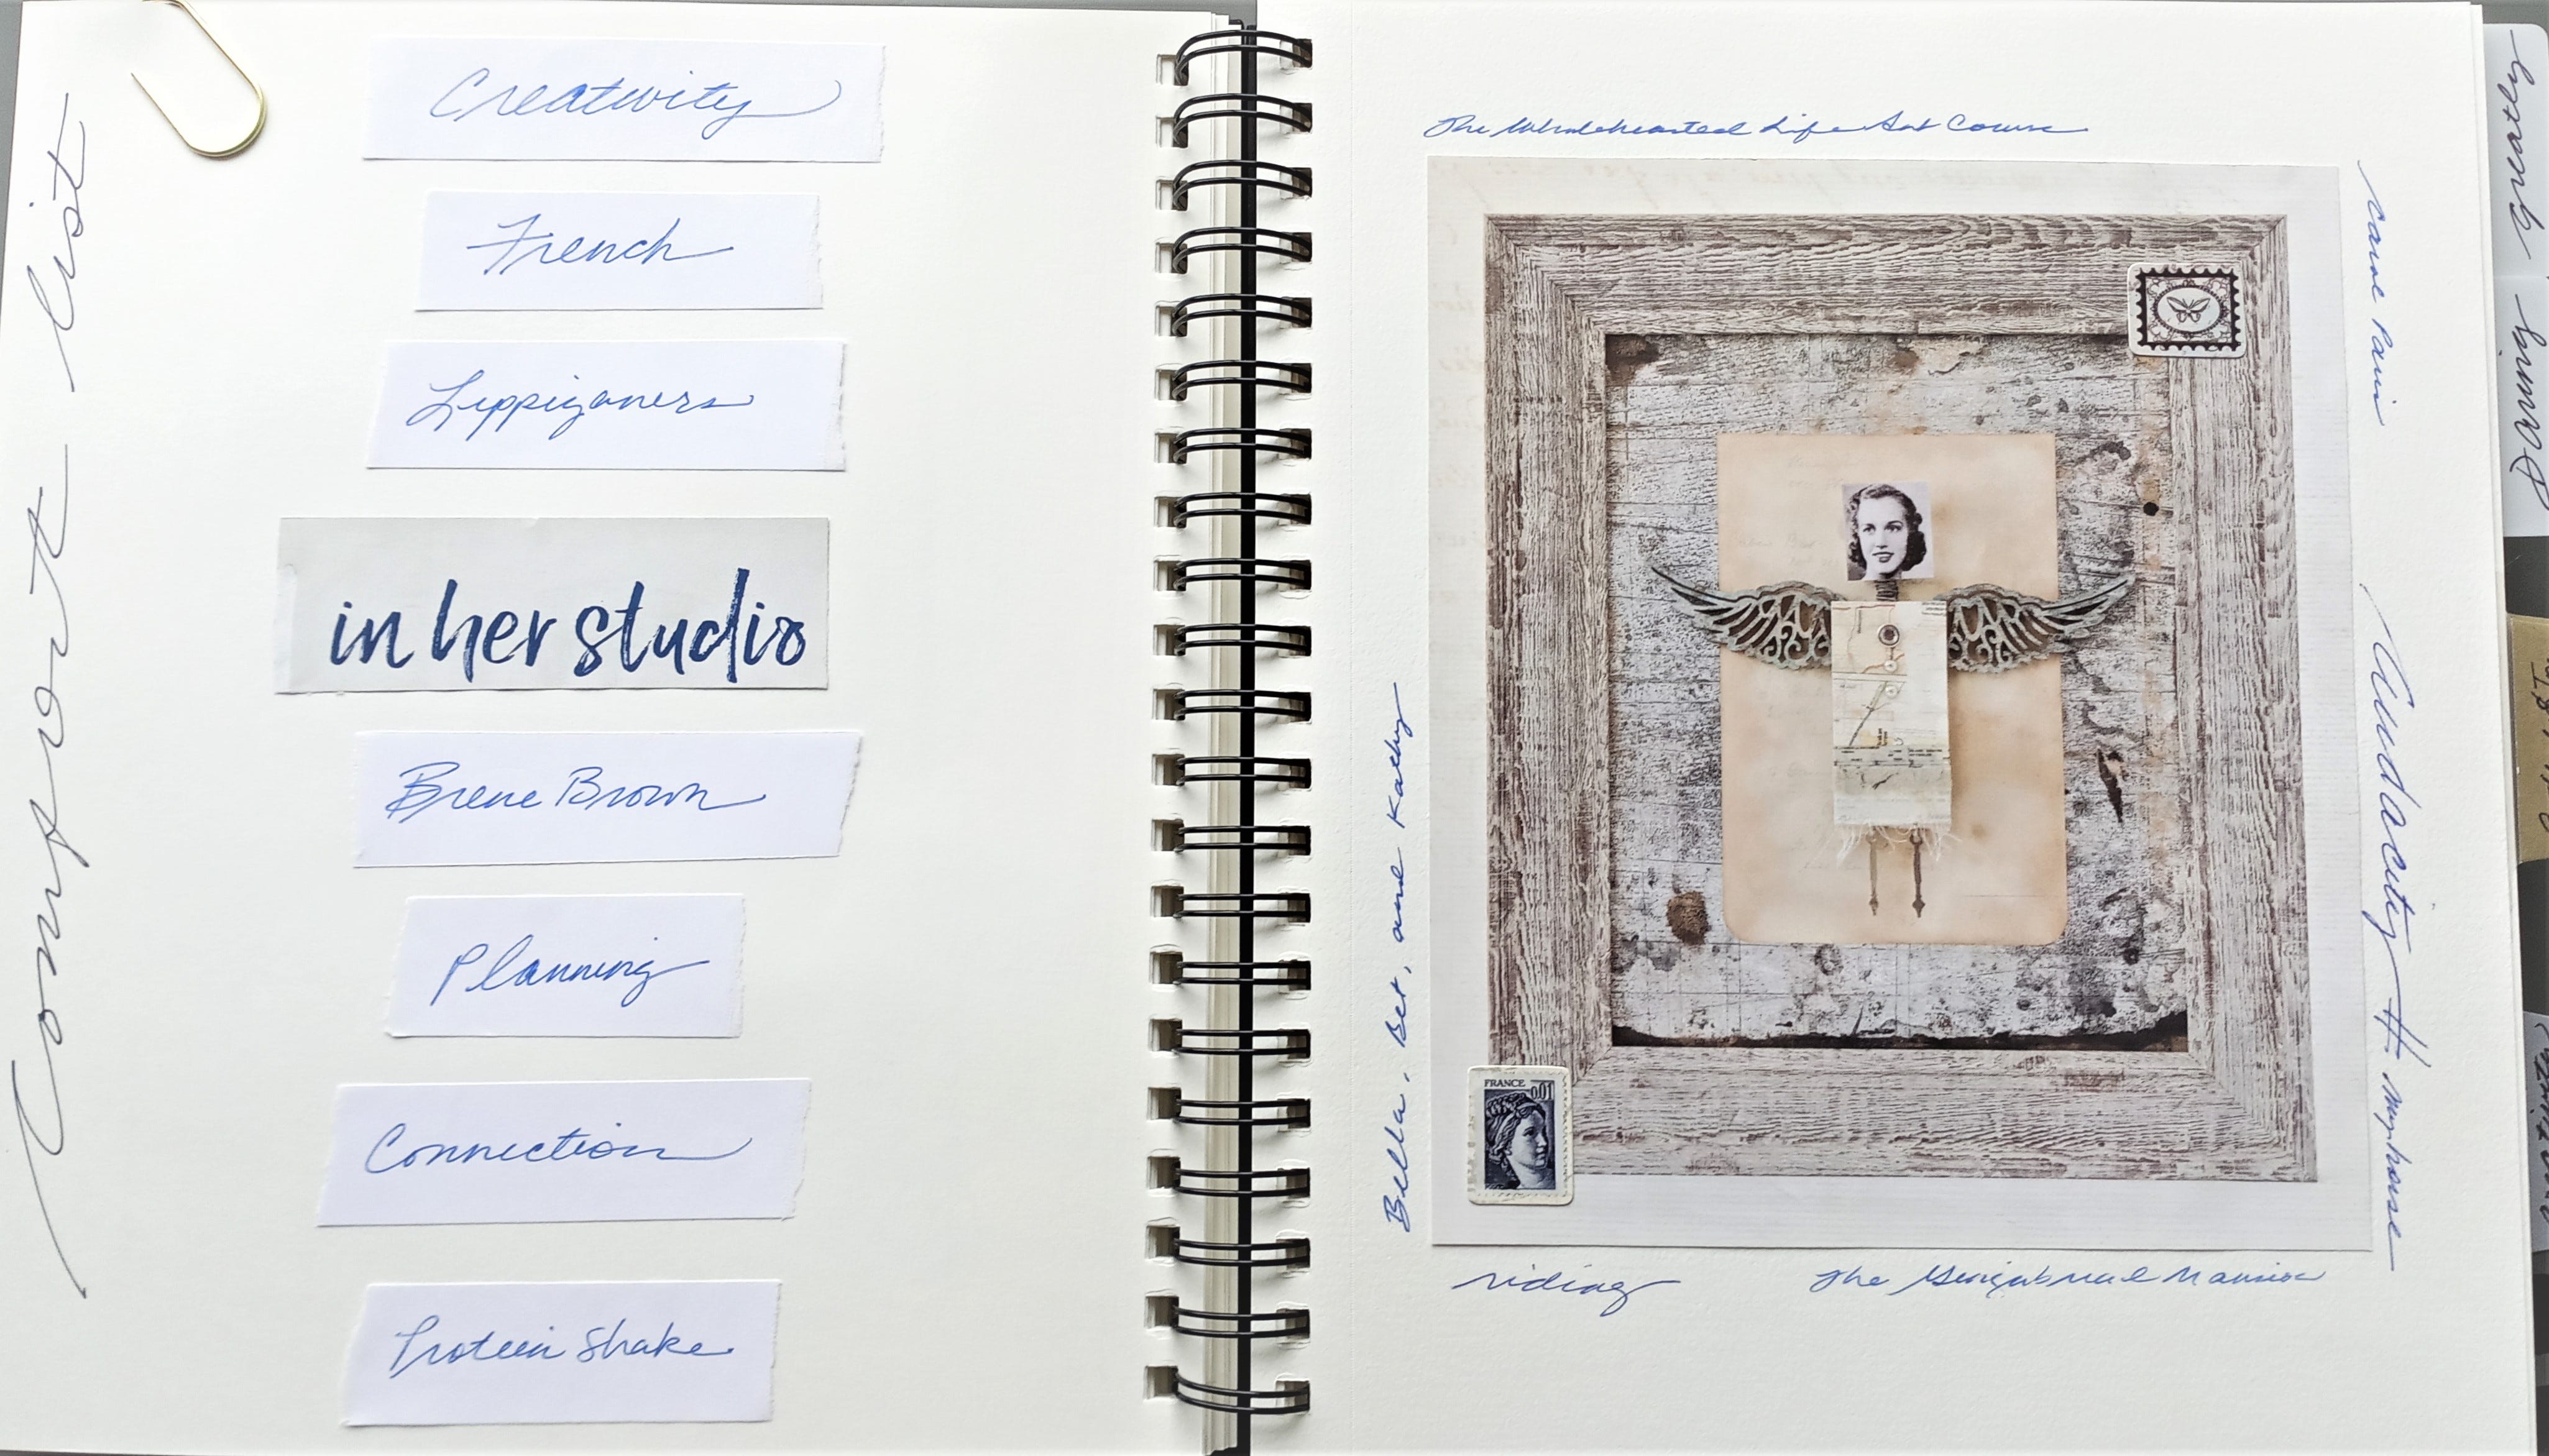 Comfort list
Creativity
French
Lippizaners
in her studio
Brene Brown
Planning
Connection
Protein Shake
The Wholehearted Life Art Course
Bella, Bet, and Kathy
FRANCE
0,01
riding
The Mansion
Carol
Audacity #
my horse
Daring greatly